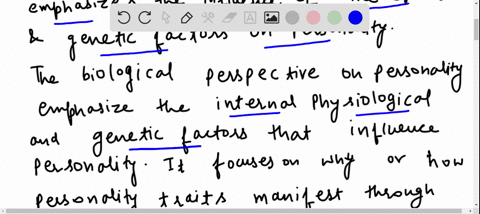 emphasize
& genetic factors on Personality.
The biological perspective on personality
emphasize the internal Physiological
and genetic factors that influence
Personality. It focuses on why or how
personality traits manifest through